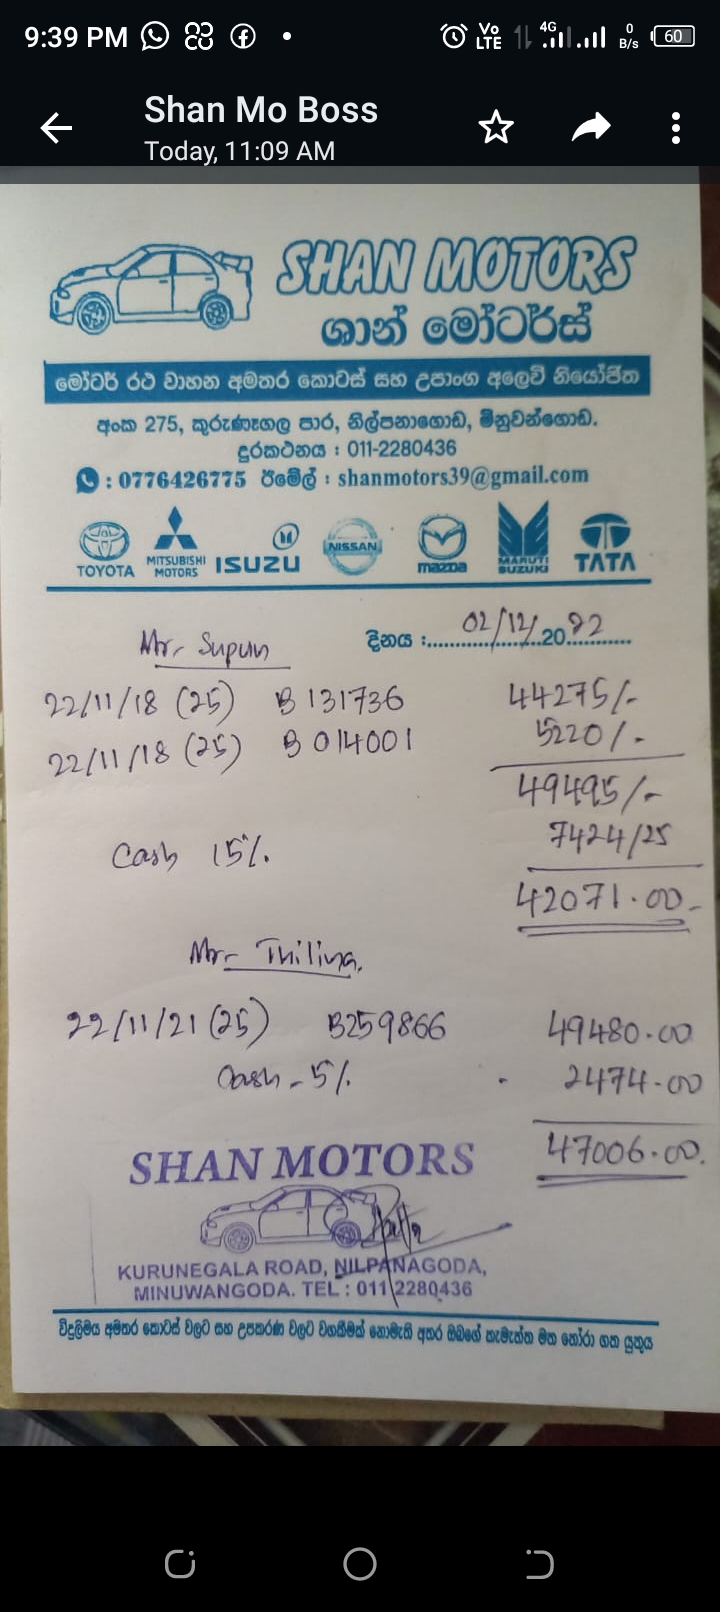 9:39 PM
Vo LTE 4G 0 B/s 60
Shan Mo Boss
Today, 11:09 AM
SHAN MOTORS
ශාන් මෝටර්ස්
මෝටර් රථ වාහන අමතර කොටස් සහ උපාංග අලෙවි නියෝජිත
අංක 275, කුරුණෑගල පාර, නිල්පනාගොඩ, මිනුවන්ගොඩ.
දුරකථනය : 011-2280436
: 0776426775 ඊමේල් : shanmotors39@gmail.com
TOYOTA MITSUBISHI MOTORS ISUZU NISSAN mazda MARUTI SUZUKI TATA
දිනය :............02/12/2022............
Mr. Supun
22/11/18 (25) B 131736 44275/-
22/11/18 (25) B 014001 5220/-
49495/-
Cash 15% 7424/25
42071.00-
Mr- Thilina.
22/11/21 (25) B259866 49480.00
Cash - 5% - 2474.00
47006.00.
SHAN MOTORS
KURUNEGALA ROAD, NILPANAGODA,
MINUWANGODA. TEL : 011 2280436
විදුලිමය අමතර කොටස් වලට සහ උපකරණ වලට වගකීමක් නොමැති අතර ඔබගේ කැමැත්ත මත තෝරා ගත යුතුය